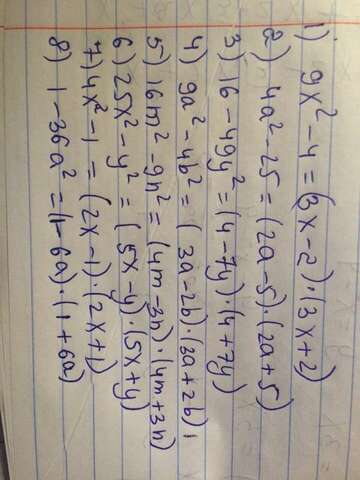 1) 9x² - 4 = (3x - 2)·(3x + 2)
2) 4a² - 25 = (2a - 5)·(2a + 5)
3) 16 - 49y² = (4 - 7y)·(4 + 7y)
4) 9a² - 4b² = (3a - 2b)·(3a + 2b)
5) 16m² - 9n² = (4m - 3n)·(4m + 3n)
6) 25x² - y² = (5x - y)·(5x + y)
7) 4x² - 1 = (2x - 1)·(2x + 1)
8) 1 - 36a² = (1 - 6a)·(1 + 6a)